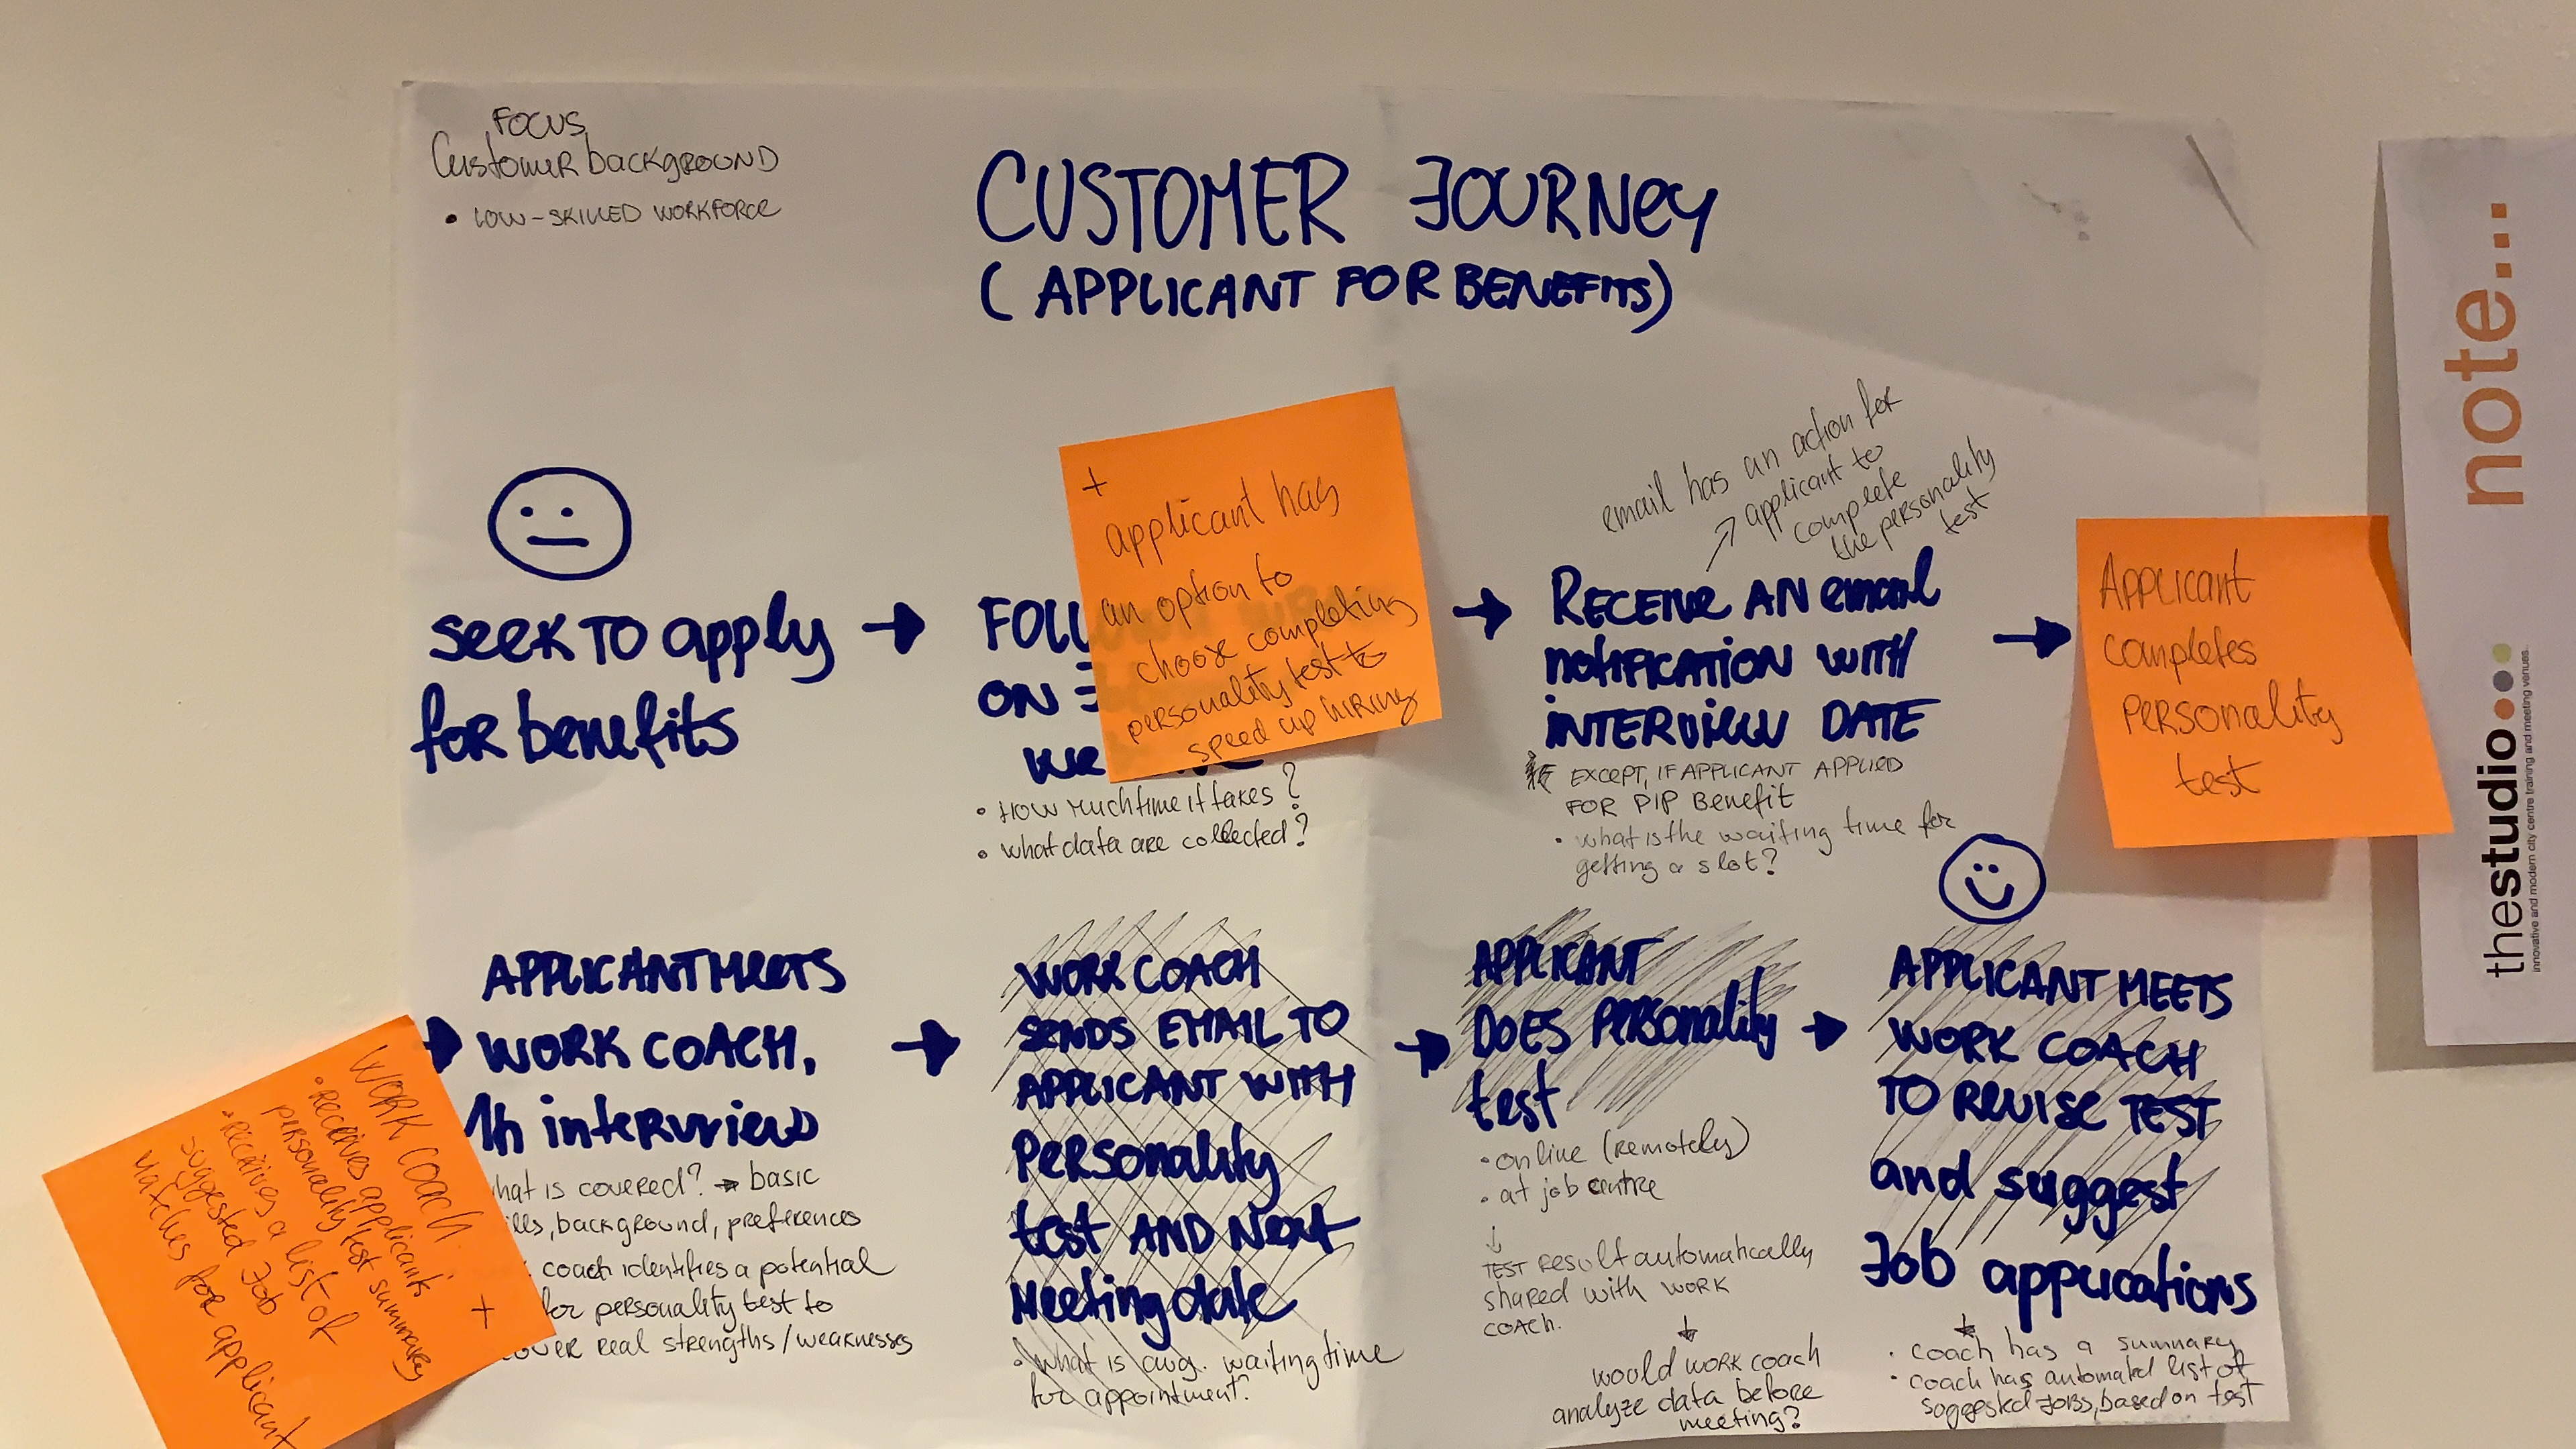 FOCUS
Customer background
• LOW-SKILLED WORKFORCE
CUSTOMER JOURNEY
(APPLICANT FOR BENEFITS)
seek to apply
for benefits
FOLL
ON
+
applicant has
an option to
choose completing
personality test to
speed up hiring
• How much time it takes?
• what data are collected?
email has an action for
applicant to
complete
the personality
test
RECEIVE AN email
notification with
interview DATE
EXCEPT, IF APPLICANT APPLIED
FOR PIP Benefit
• what is the waiting time for
getting a slot?
Applicant
completes
personality
test
APPLICANT MEETS
WORK COACH,
1h interview
hat is covered? → basic
ills, background, preferences
coach identifies a potential
for personality test to
over real strengths/weaknesses
WORK COACH
• Receives applicants
personality test summary
• Receives a list of
suggested Job
matches for applicant
+
WORK COACH
SENDS EMAIL TO
APPLICANT WITH
Personality
test AND Next
Meeting date
• What is avg. waiting time
for appointment?
APPLICANT
DOES Personality
test
• online (remotely)
• at job centre
TEST result automatically
shared with WORK
COACH.
would work coach
analyze data before
meeting?
APPLICANT MEETS
WORK COACH
TO REVISE TEST
and suggest
Job applications
• coach has a summary
• coach has automated list of
suggested Jobs, based on test
note...
thestudio
innovative and modern city centre training and meeting venues.